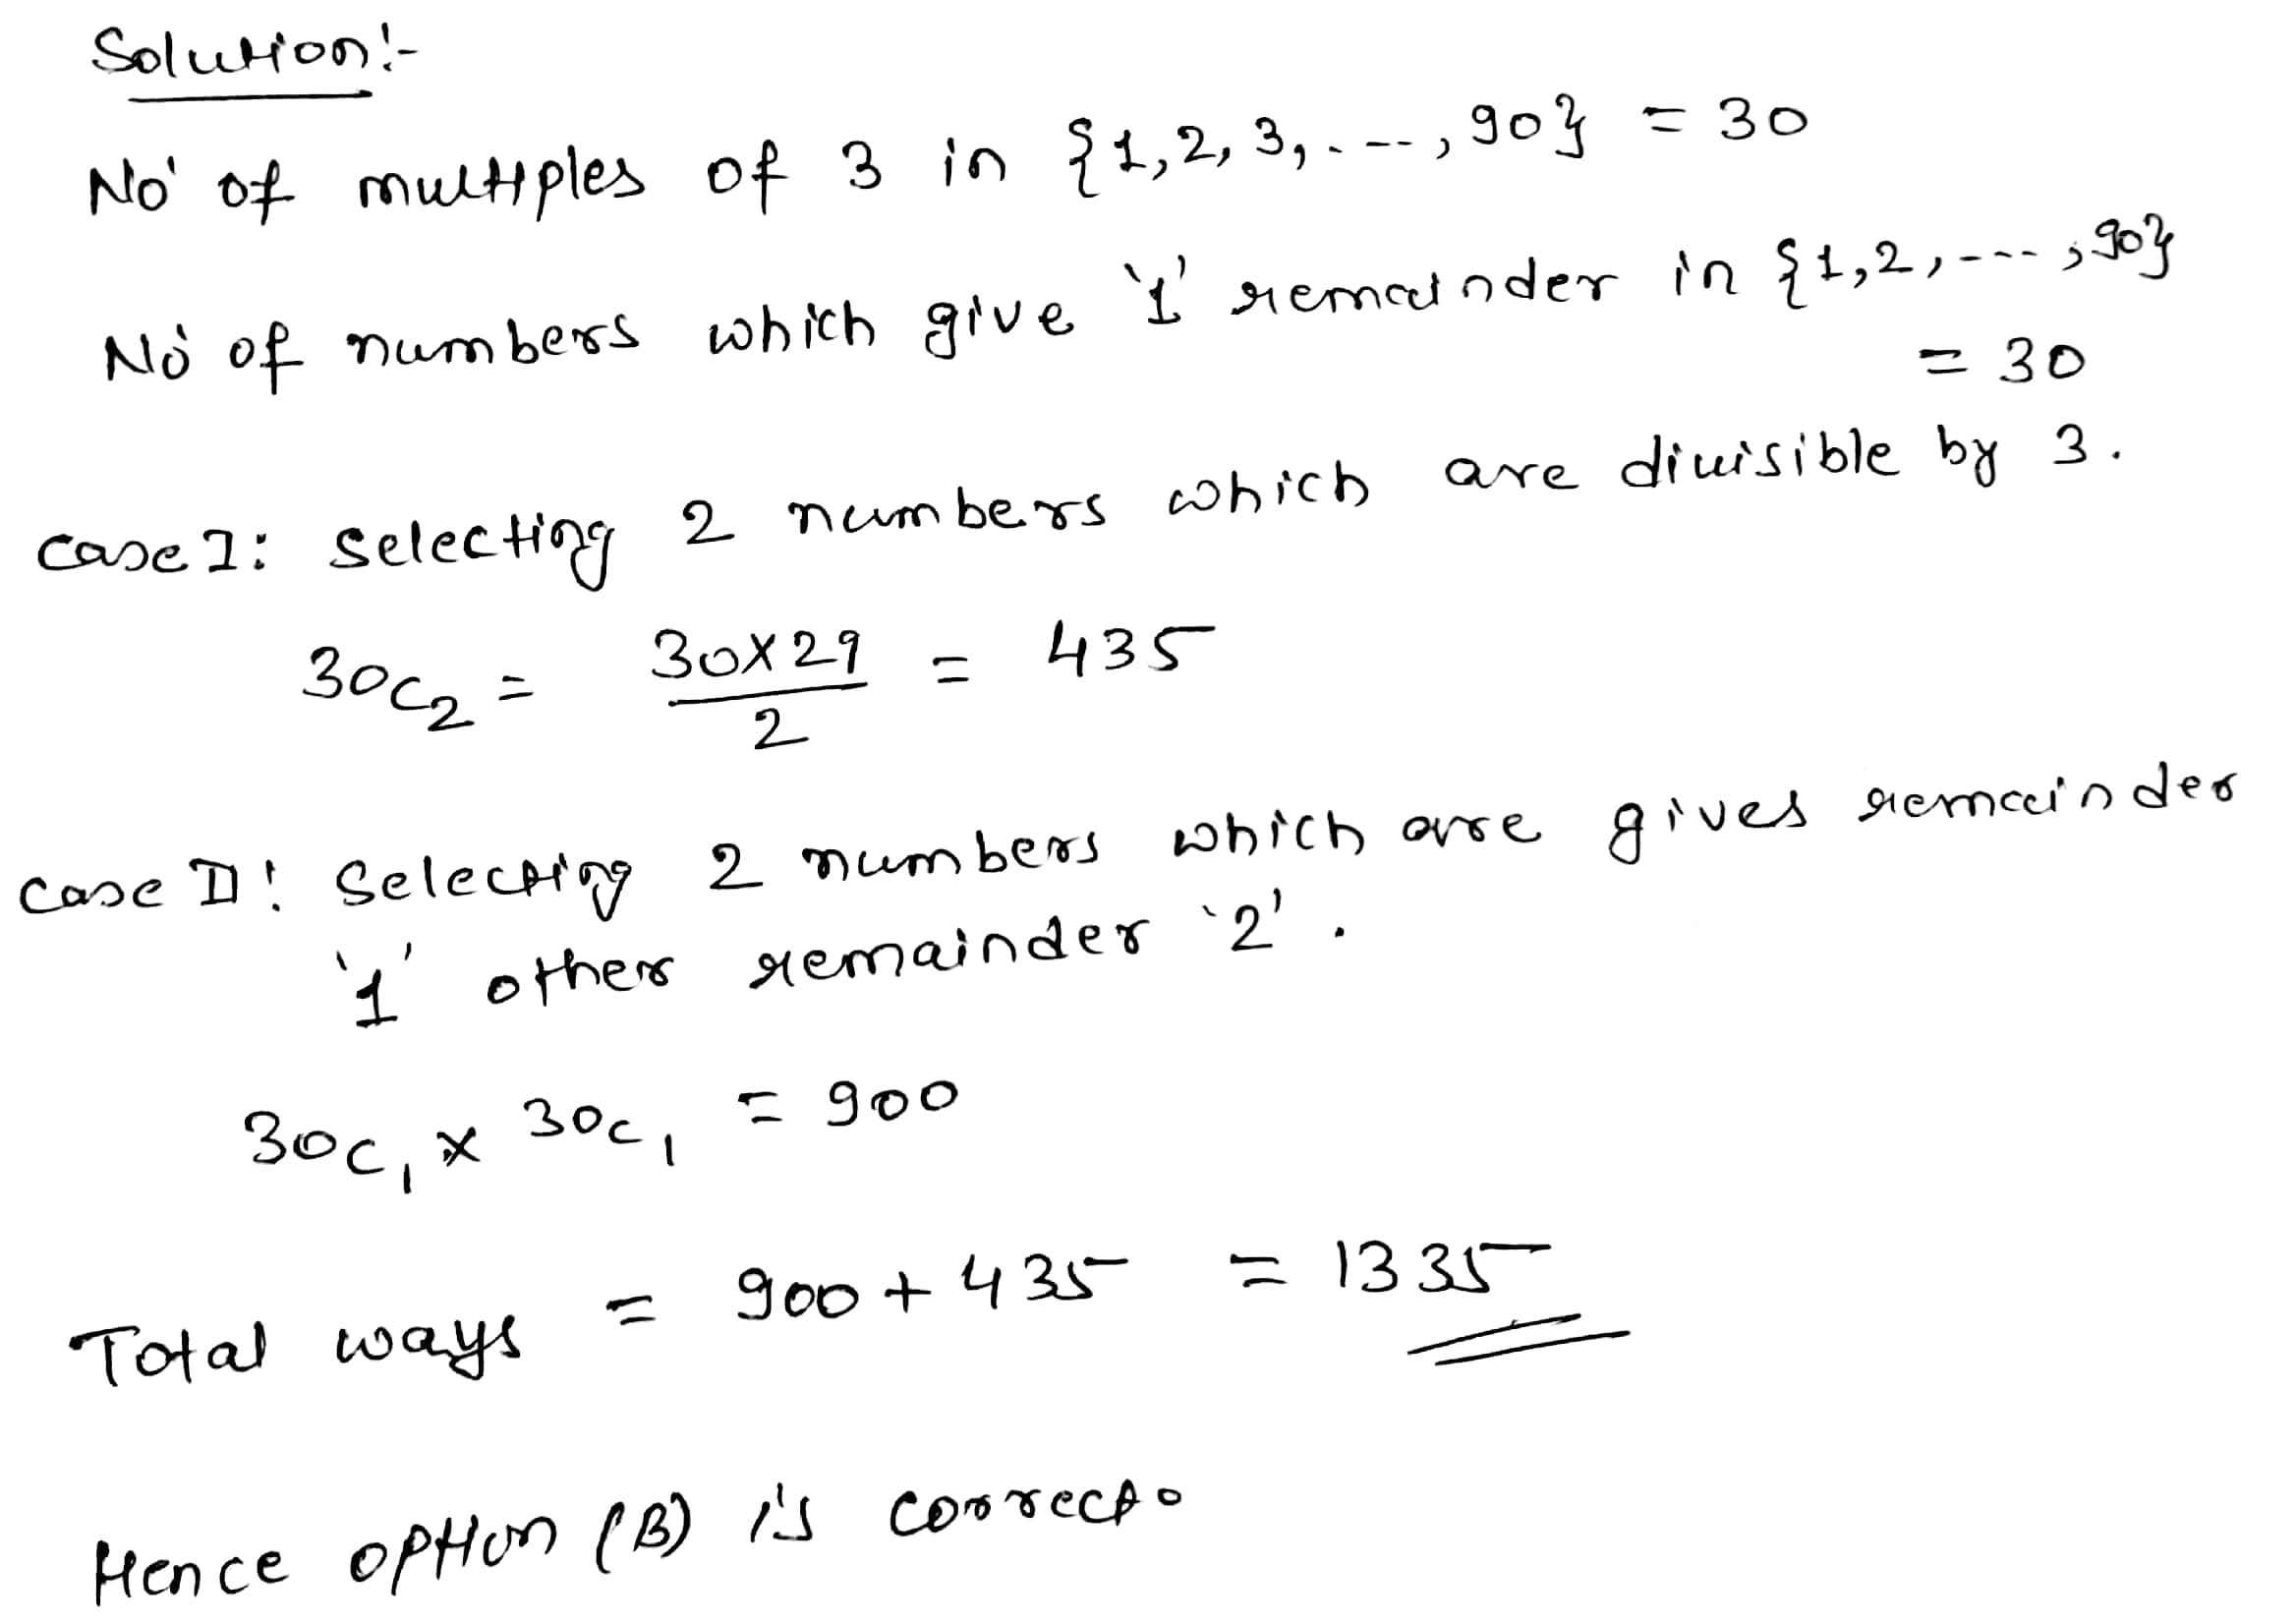 Solution:-
No' of multiples of 3 in {1,2,3,.--,90} = 30
No' of numbers which give '1' remainder in {1,2,---,90}
= 30
case I: selecting 2 numbers which are divisible by 3.
30C2 = 30x29/2 = 435
case II: Selecting 2 numbers which are gives remainder
'1' other remainder '2'.
30C1 x 30C1 = 900
Total ways = 900 + 435 = 1335
Hence option (B) is correct.